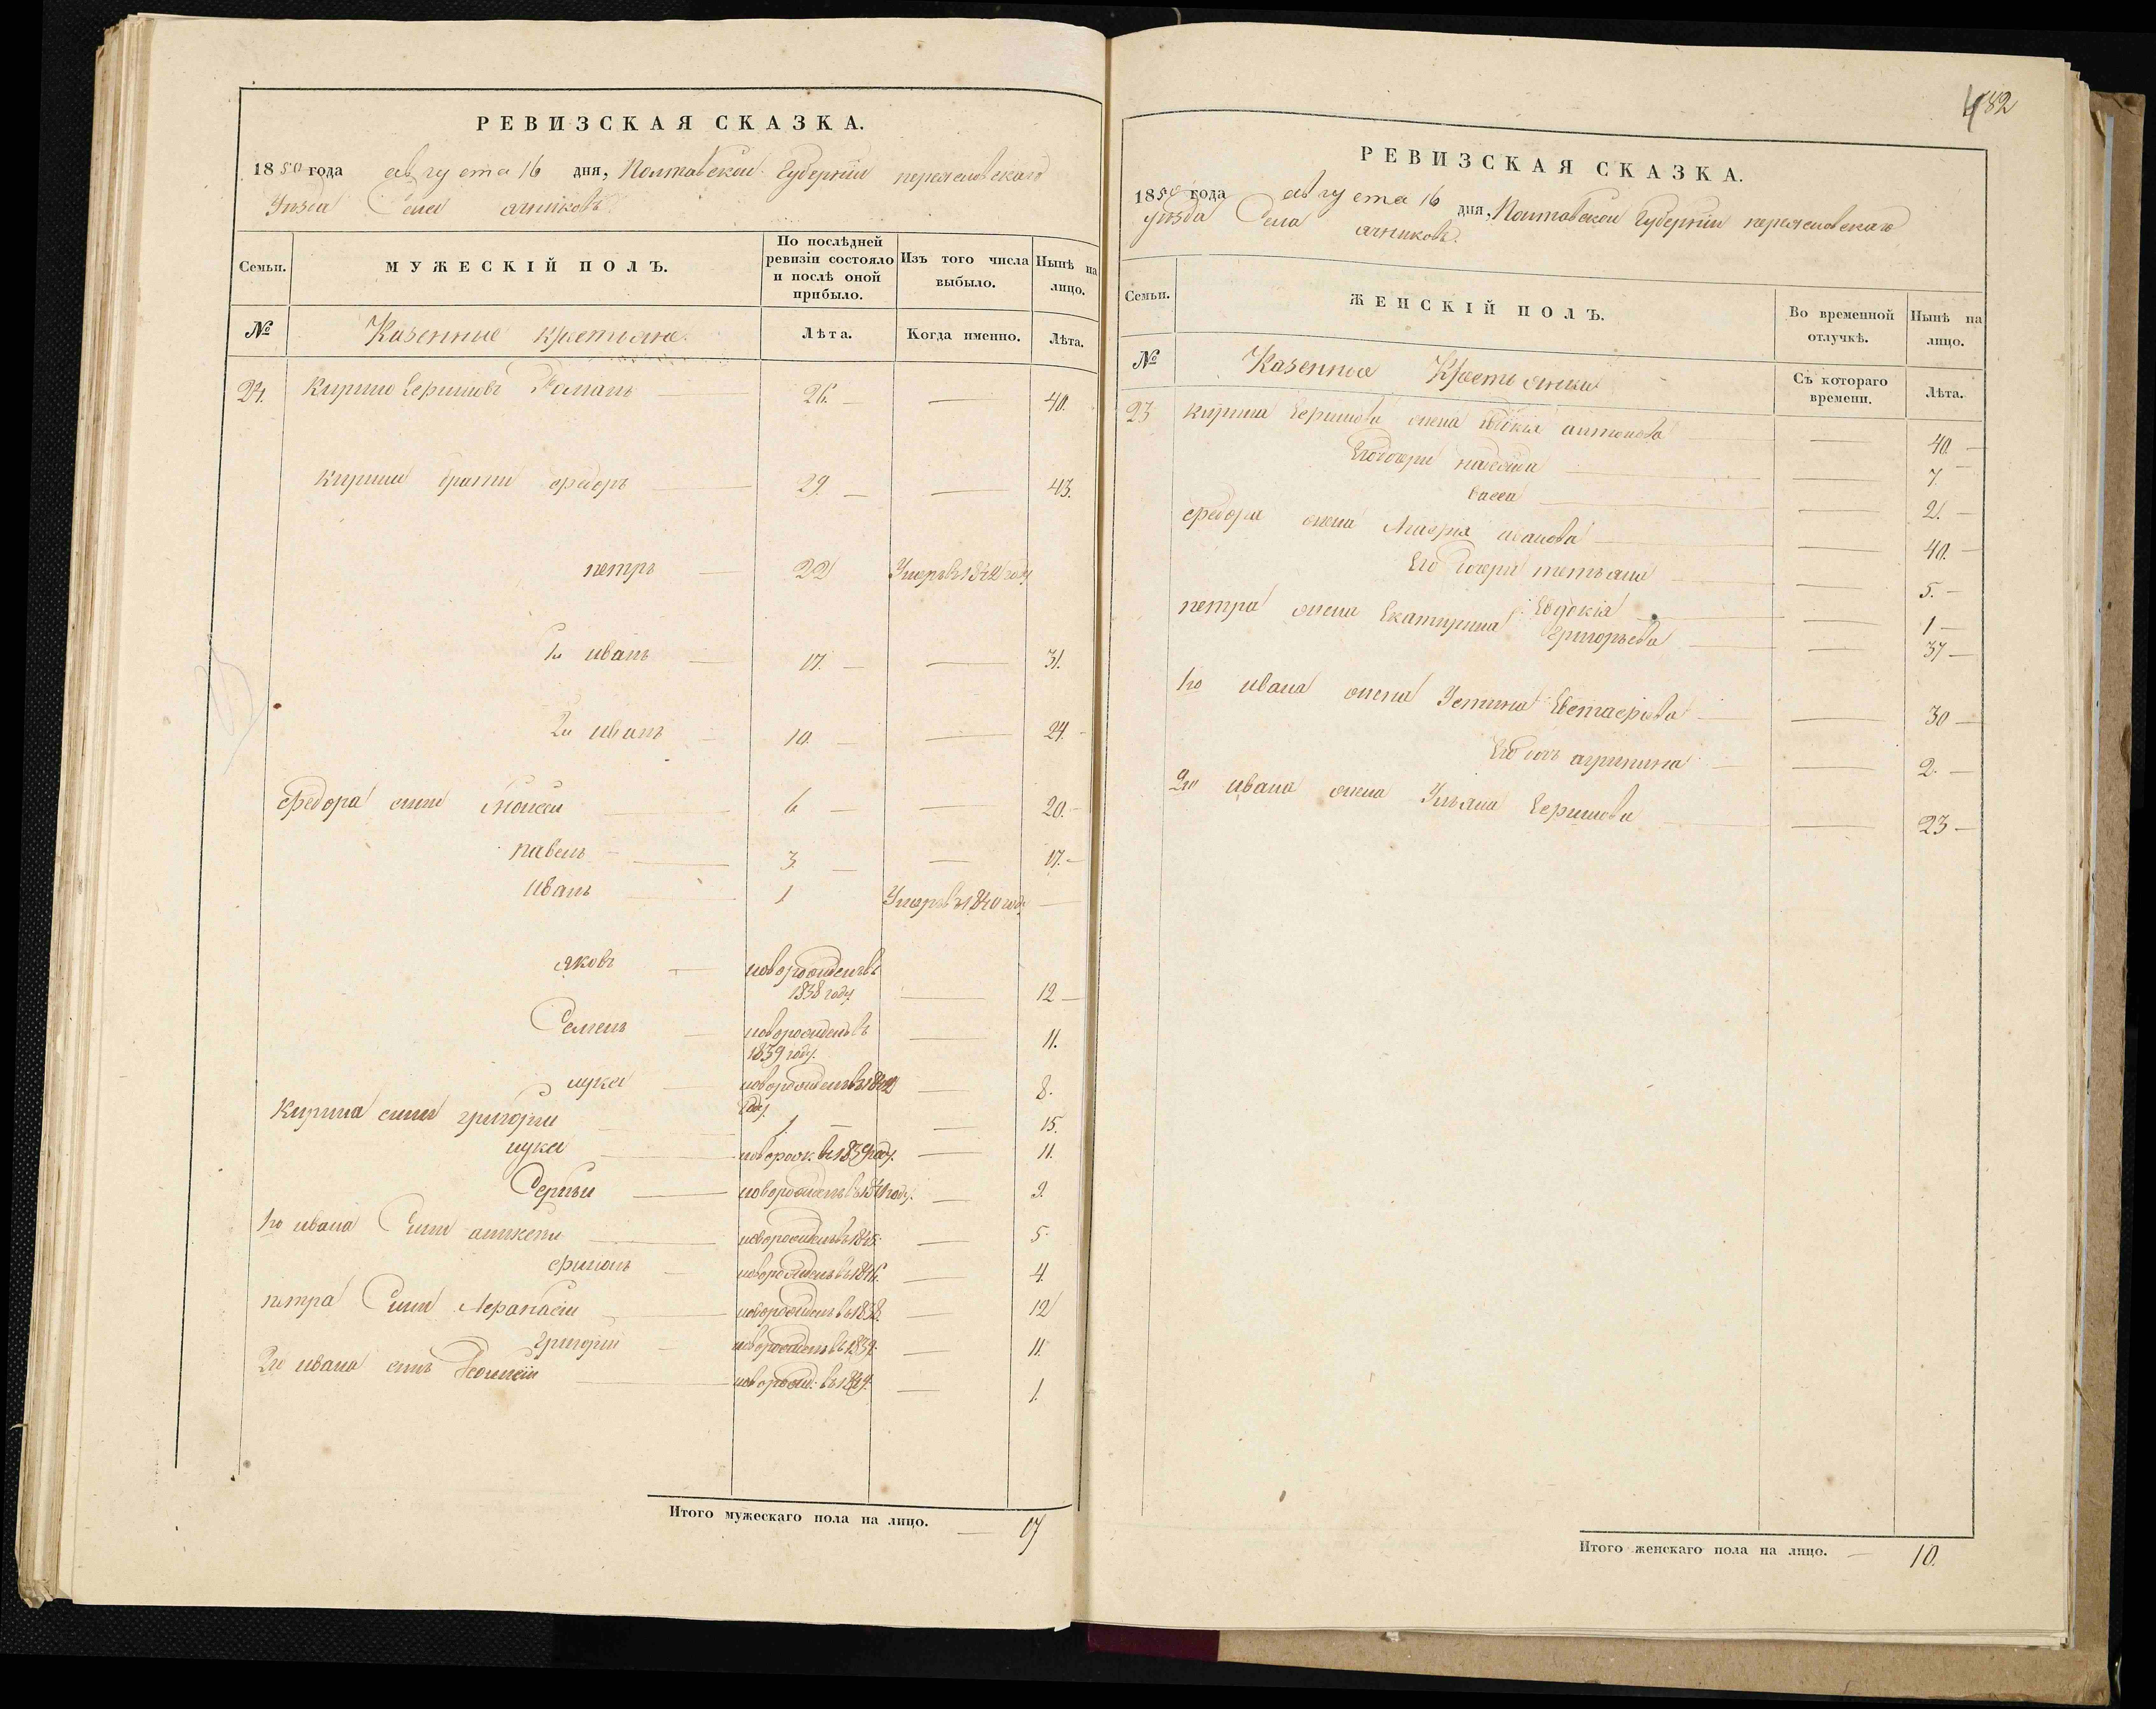 РЕВИЗСКАЯ СКАЗКА.
1850 года августа 16 дня, Полтавской Губернии переяславскаго
Уезда Села
Семьи.
МУЖЕСКІЙ ПОЛЪ.
По послѣдней ревизіи состояло и послѣ оной прибыло.
Изъ того числа выбыло.
Нынѣ на лицо.
№
Казенные крестьяне.
Лѣта.
Когда именно.
Лѣта.
24. Кирило 26. 40.
Кирила брати федоръ 29. 43.
петръ 22 Умеръ въ 1842 году
1й иванъ 17. 31.
2й иванъ 10. 24.
Федора сини 6 20.
павелъ 3. 17.
иванъ 1 Умеръ въ 1840 году
яковъ новорожденъ въ
1838 году 12
Семенъ новорожденъ въ 11.
1839 году.
лука новорожденъ въ 1842 8.
году.
Кирила сини григорий 1 15.
лука новорож. въ 1839 году. 11.
Сергѣй новорожденъ въ 1841 году. 9.
1го ивана Сини 5.
новорожденъ въ 1846. 4.
петра Сини Афанасій новорожденъ въ 1838. 12
Григорій новорожденъ въ 1839. 11.
2го ивана синъ новорожд. въ 1849. 1.
Итого мужескаго пола на лицо. 17
482
РЕВИЗСКАЯ СКАЗКА.
1850 года августа 16 дня, Полтавской Губерніи переяславскаго
уезда Села
Семьи.
ЖЕНСКІЙ ПОЛЪ.
Во временной отлучкѣ.
Нынѣ на лицо.
№
Казенные Крестьянки
Съ котораго времени.
Лѣта.
23 кирила жена антонова 40.
Его дочери 7
васса 2.
федора жена иванова 40.
Его дочери татьяна 5.
Евдокія 1
петра жена Екатирина Григорьева 37
1го ивана жена Устина 30
Его дочь агрипина 2.
2го ивана жена Ульяна 23
Итого женскаго пола на лицо. 10.